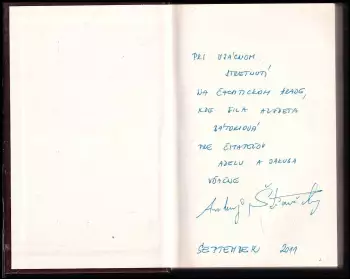 PRI VZÁCNOM
STRETNUTÍ
NA ČACHTICKOM HRADE,
KDE BOLA ALŽBETA
BÁTORIOVÁ
PRE ČITATEĽOV
ADELU A
VĎAČNE
SEPTEMBER 2011